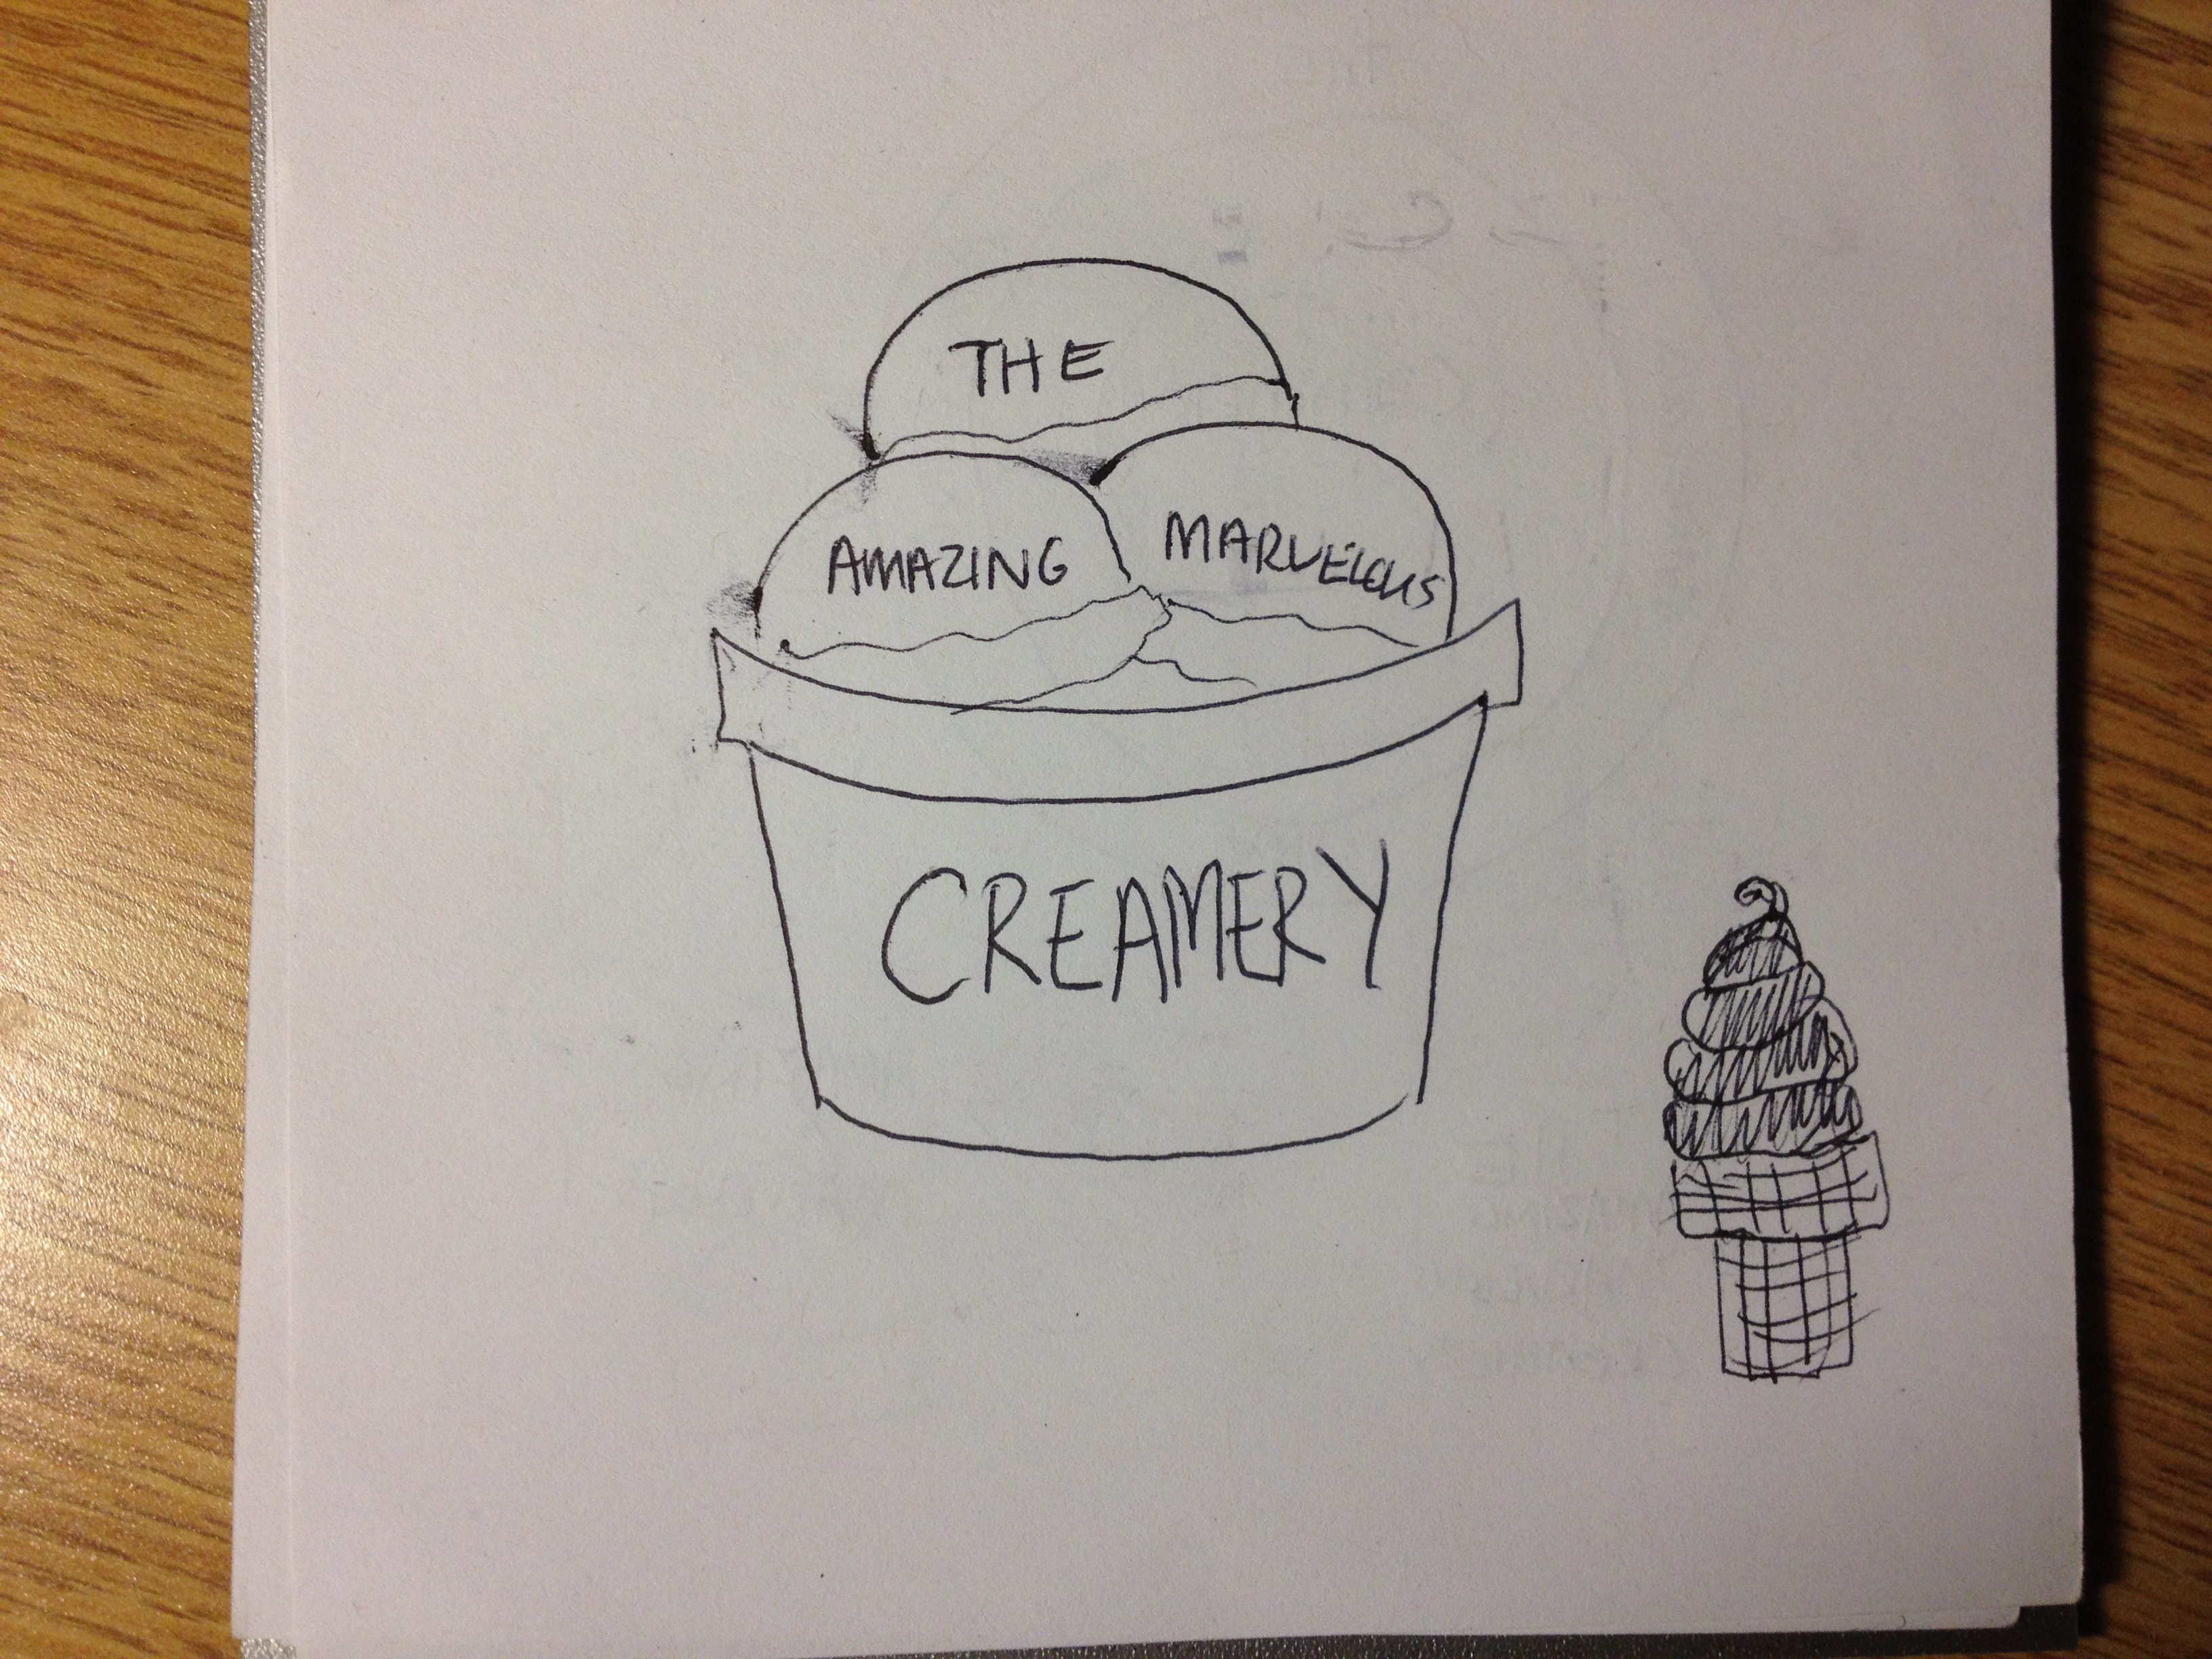 THE
AMAZING MARVELOUS
CREAMERY